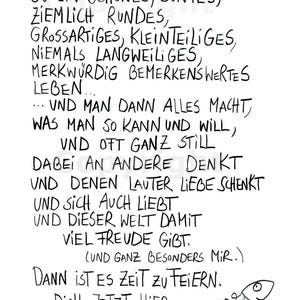 ZIEMLICH RUNDES,
GROSSARTIGES, KLEINTEILIGES,
NIEMALS LANGWEILIGES,
MERKWÜRDIG BEMERKENSWERTES
LEBEN...
... UND MAN DANN ALLES MACHT,
WAS MAN SO KANN UND WILL,
UND OFT GANZ STILL
DABEI AN ANDERE DENKT
UND DENEN LAUTER LIEBE SCHENKT
UND SICH AUCH LIEBT
UND DIESER WELT DAMIT
VIEL FREUDE GIBT.
(UND GANZ BESONDERS MIR.)
DANN IST ES ZEIT ZU FEIERN.